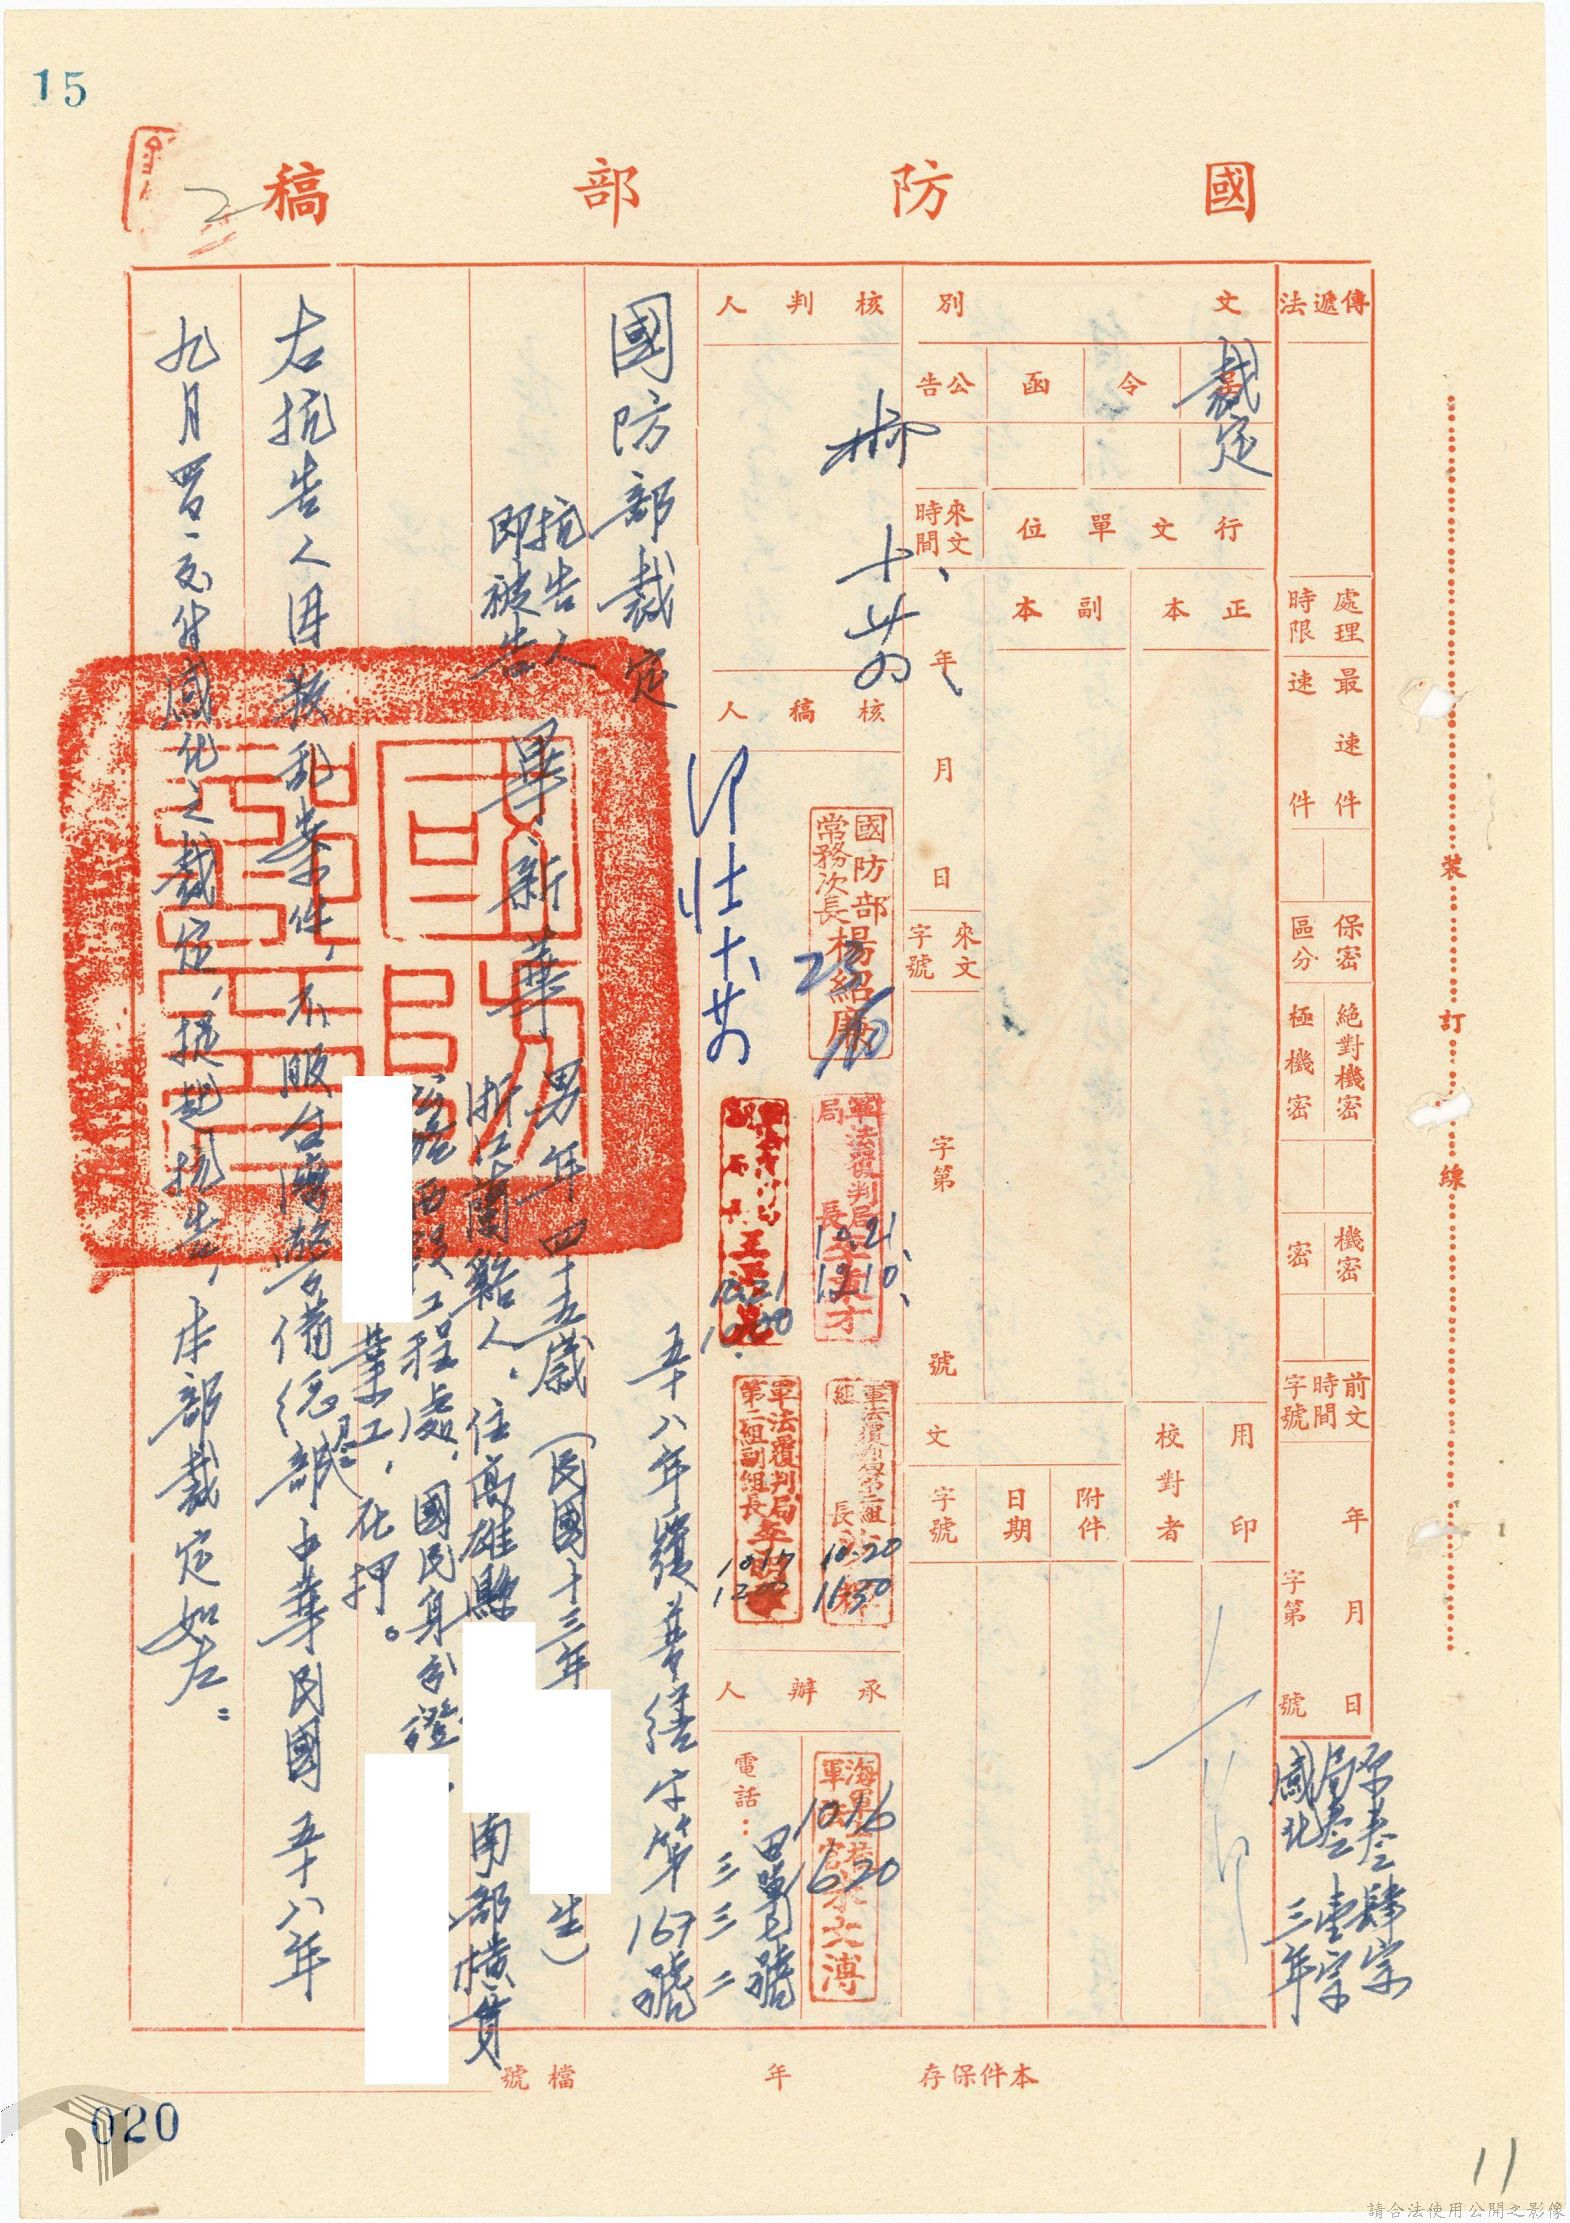 15
國防部稿
傳遞法
處理時限
最速件
速件
保密區分
絕對機密
極機密
機密
密
前文時間字號
年月日
字第號
原叁肆字
局叁壹字
感化三年
文別
裁定
令
函
公告
行文單位
正本
副本
來文時間
年月日
來文字號
字第
號
用印
校對者
附件
日期
文
字號
核判人
核稿人
國防部常務次長楊紹廉
23
軍法覆判局局長
10.21
1210
10.21
10.00
軍法覆判局第二組組長
10.20
1150
軍法覆判局第二組副組長
10.17
1200
承辦人
海軍
軍法官
10.16
1620
電話：
三三二
國防部裁定
五十八年覆普繕字第167號
抗告人
即被告
畢新華
男年四十五歲（民國十三年
生）
浙江蘭谿人，住高雄縣
南部橫貫
公路西段工程處，國民身分證
業工，在押。
右抗告人因叛亂案件，不服台灣警備總部中華民國五十八年
九月四日交付感化之裁定，提起抗告，本部裁定如左：
裝訂線
本件保存
年
檔號
020
11
請合法使用公開之影像